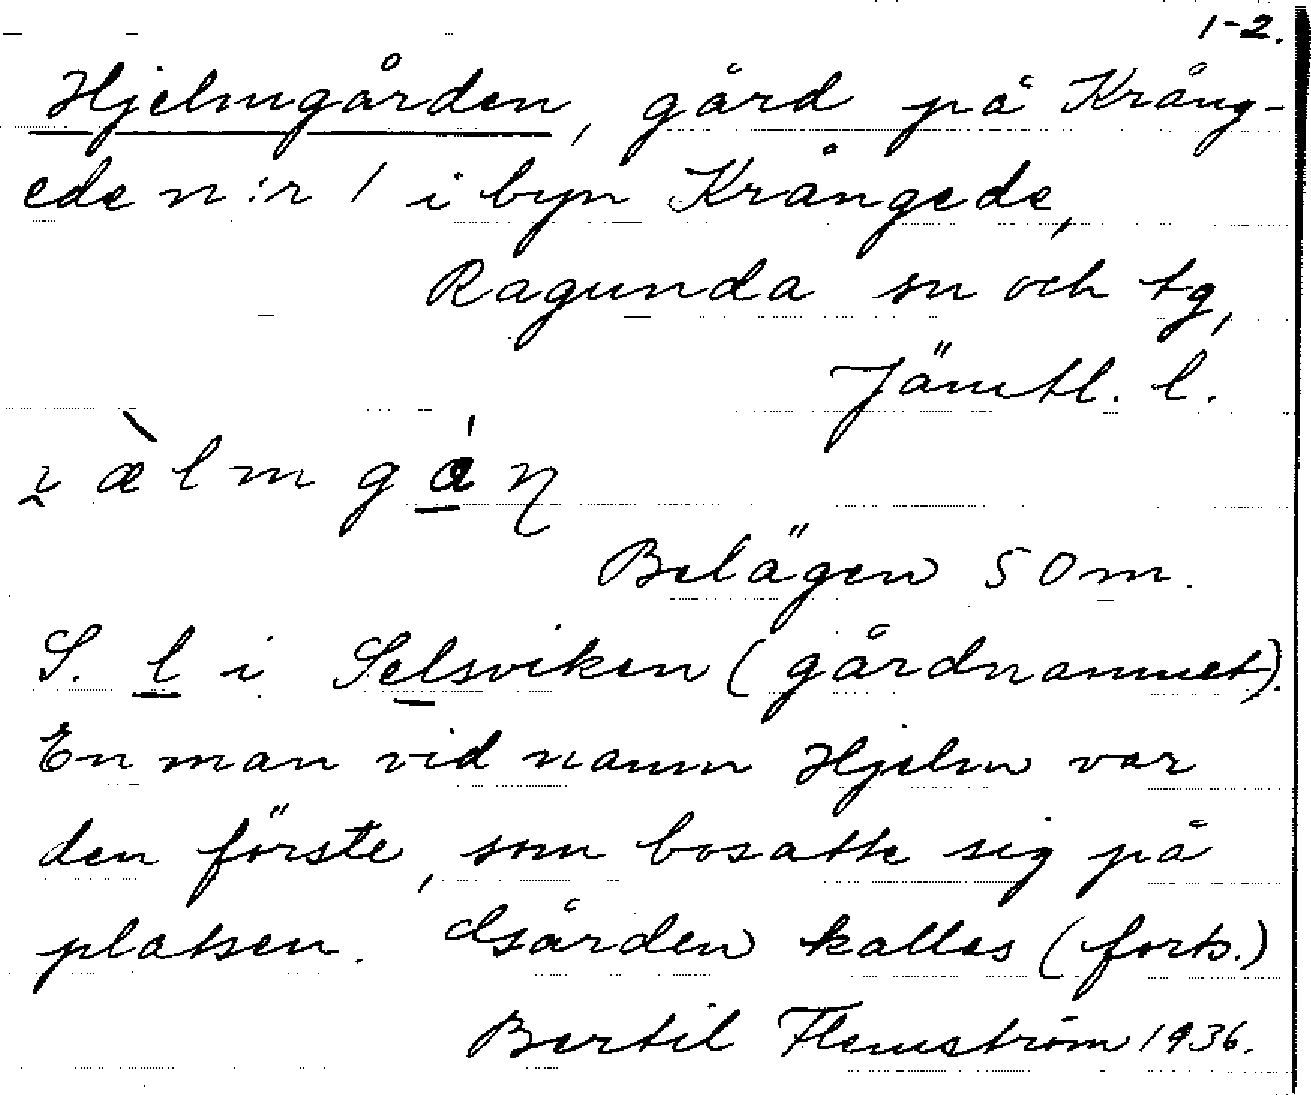 1-2.
Hjelmgården, gård på Krång-
ede n:r 1 i byn Krångede,
Ragunda sn och tg,
Jämtl. l.
i̯æ̀lmgán
Belägen 50 m.
S. l i Selsviken (gårdnamnet).
En man vid namn Hjelm var
den förste, som bosatte sig på
platsen. Gården kallas (forts.)
Bertil Flemström 1936.